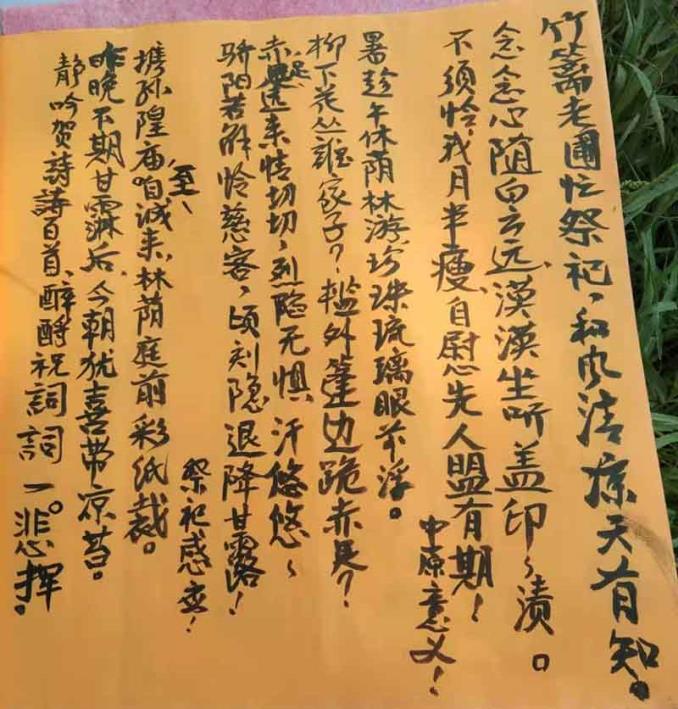 竹篱老圃忙祭祀，和风洁凉天有知。
念念心随白云远，漠漠坐听盖印、渍。
不须怜我月半瘦，自慰先人盟有期！
中原意义！
暑趁午休荫林游，珍珠琉璃眼前浮。
柳下花丛谁家子？槛外篷边跪赤足？
赤足远来情切切，烈阳无惧汗悠悠、
骄阳若解怜慈客，顷刻隐退降甘露！
祭祀感言！
至、
携孙隍庙咱诚来，林荫庭前彩纸裁。
昨晚不期甘霖后，今朝犹喜带凉苔。
静吟贺诗诗百首，醉酵祝词词一。悲挥。